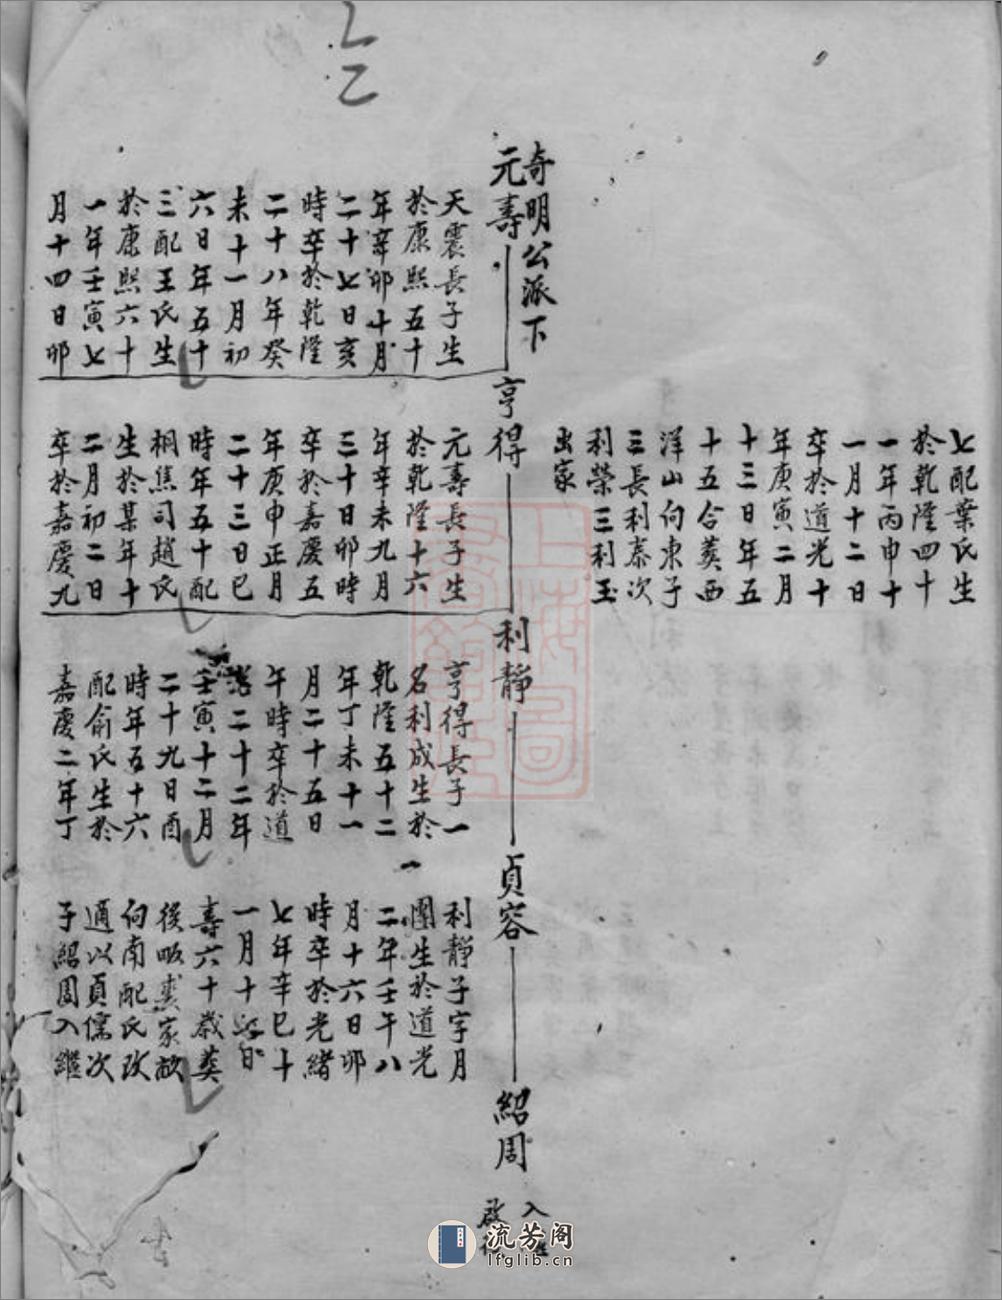 七配葉氏生
於乾隆四十
一年丙申十
一月十二日
卒於道光十
年庚寅二月
十三日年五
十五合葬西
洋山向東子
三長利泰次
利榮三利玉
出家
奇明公派下
元壽
天震長子生
於康熙五十
年辛卯十月
二十七日亥
時卒於乾隆
二十八年癸
未十一月初
六日年五十
三配王氏生
於康熙六十
一年壬寅七
月十四日卯
亨得
元壽長子生
於乾隆十六
年辛未九月
三十日卯時
卒於嘉慶五
年庚申正月
二十三日巳
時年五十配
桐焦司趙氏
生於某年十
二月初二日
卒於嘉慶九
利靜
亨得長子一
名利成生於
乾隆五十二
年丁未十一
月二十五日
午時卒於道
光二十二年
壬寅十二月
二十九日酉
時年五十六
配俞氏生於
嘉慶二年丁
貞容
利靜子字月
團生於道光
二年壬午八
月十六日卯
時卒於光緒
七年辛巳十
一月十日
壽六十歲葬
後畈龔家
向南配氏改
適以貞儒次
子紹周入繼
紹周
入
啟
流芳阁
lfglib.cn